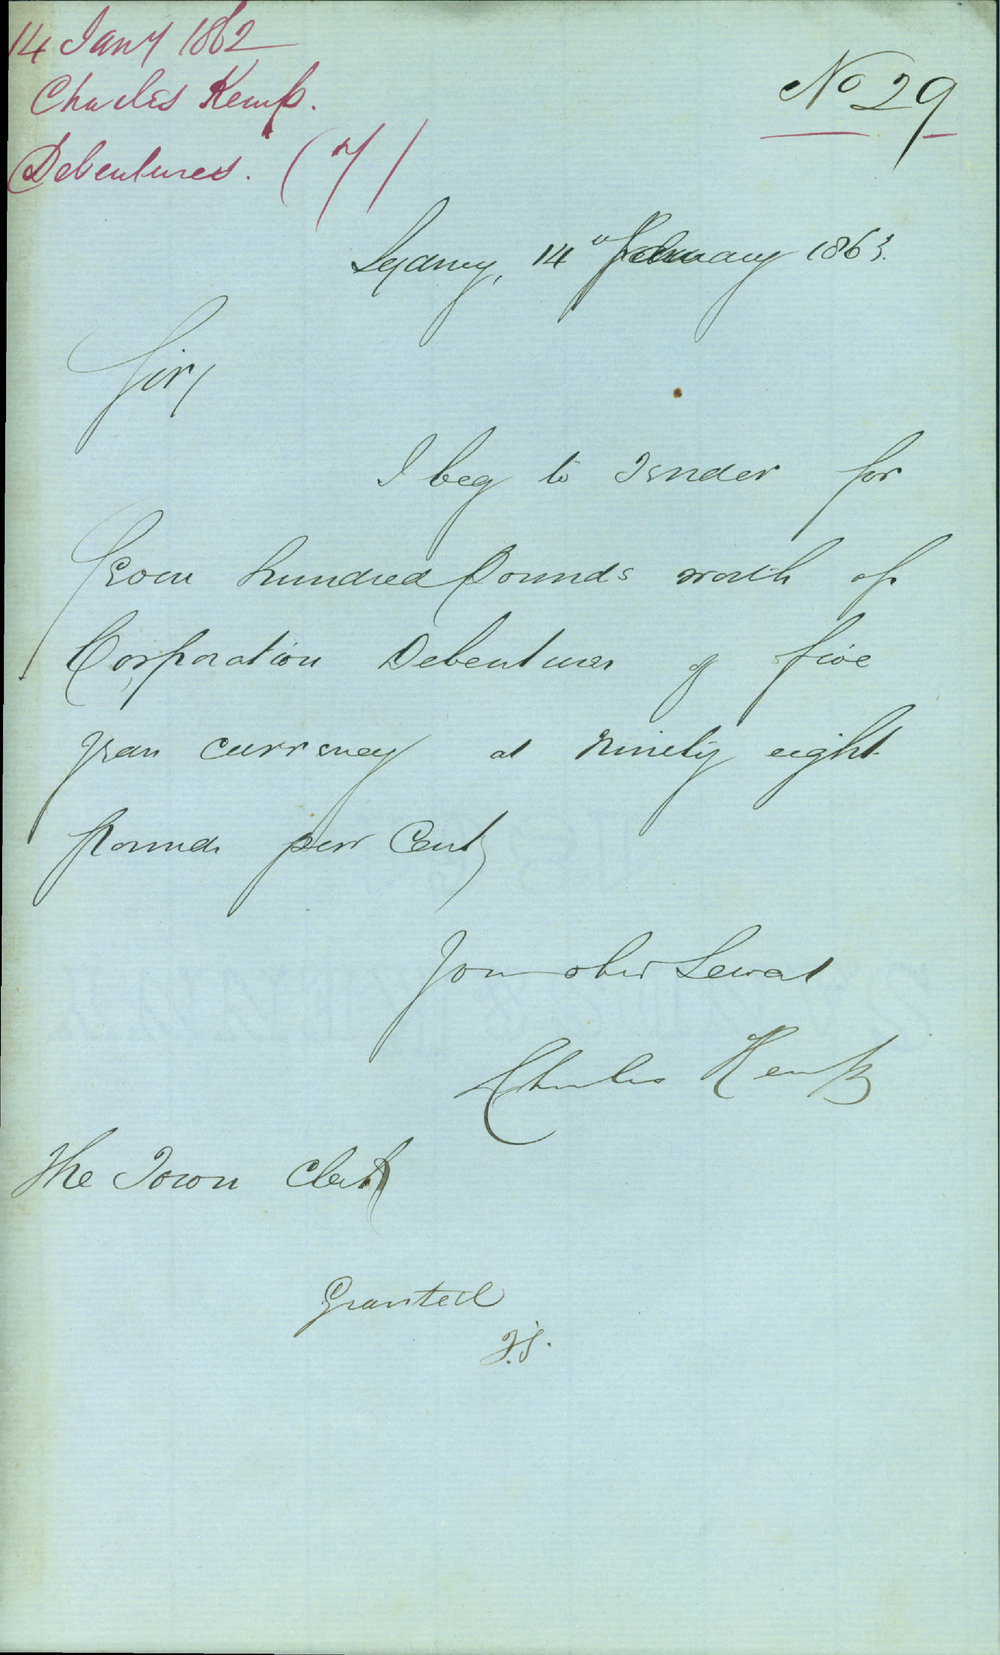 14 Jany 1862
Charles Kemp.
Debentures. (7)
No 29
Sydney, 14th February 1863.
Sir,
I beg to Tender for
Four hundred Pounds worth of
Corporation Debentures of five
years currency at ninety eight
Pounds per Cent,
Your obdt Servat
Charles Kemp
The Town Clerk
Granted